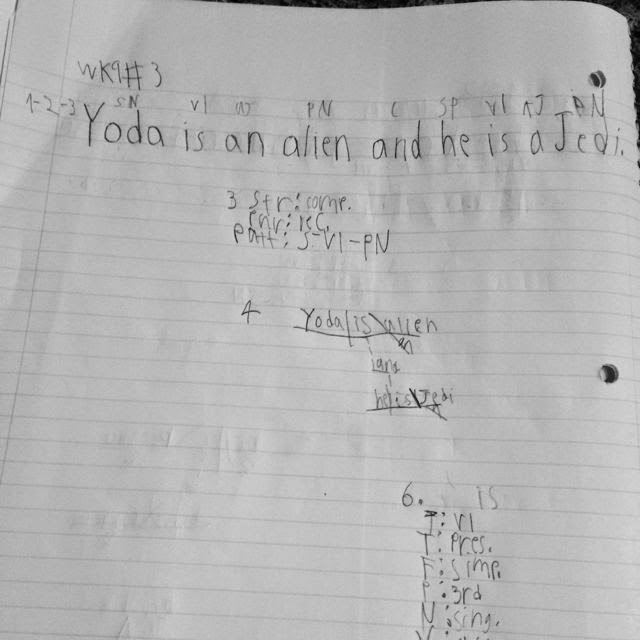 WK9#3
SN VI AJ PN C SP VI AJ PN
1-2-3 Yoda is an alien and he is a Jedi.
3 Str: comp.
PAtt: S-VI-PN
4 Yoda|is\alien
an
and
he|is\Jedi
a
6. IS
P: VI
T: Pres.
F: Simp.
P: 3rd
N: sing.
V: